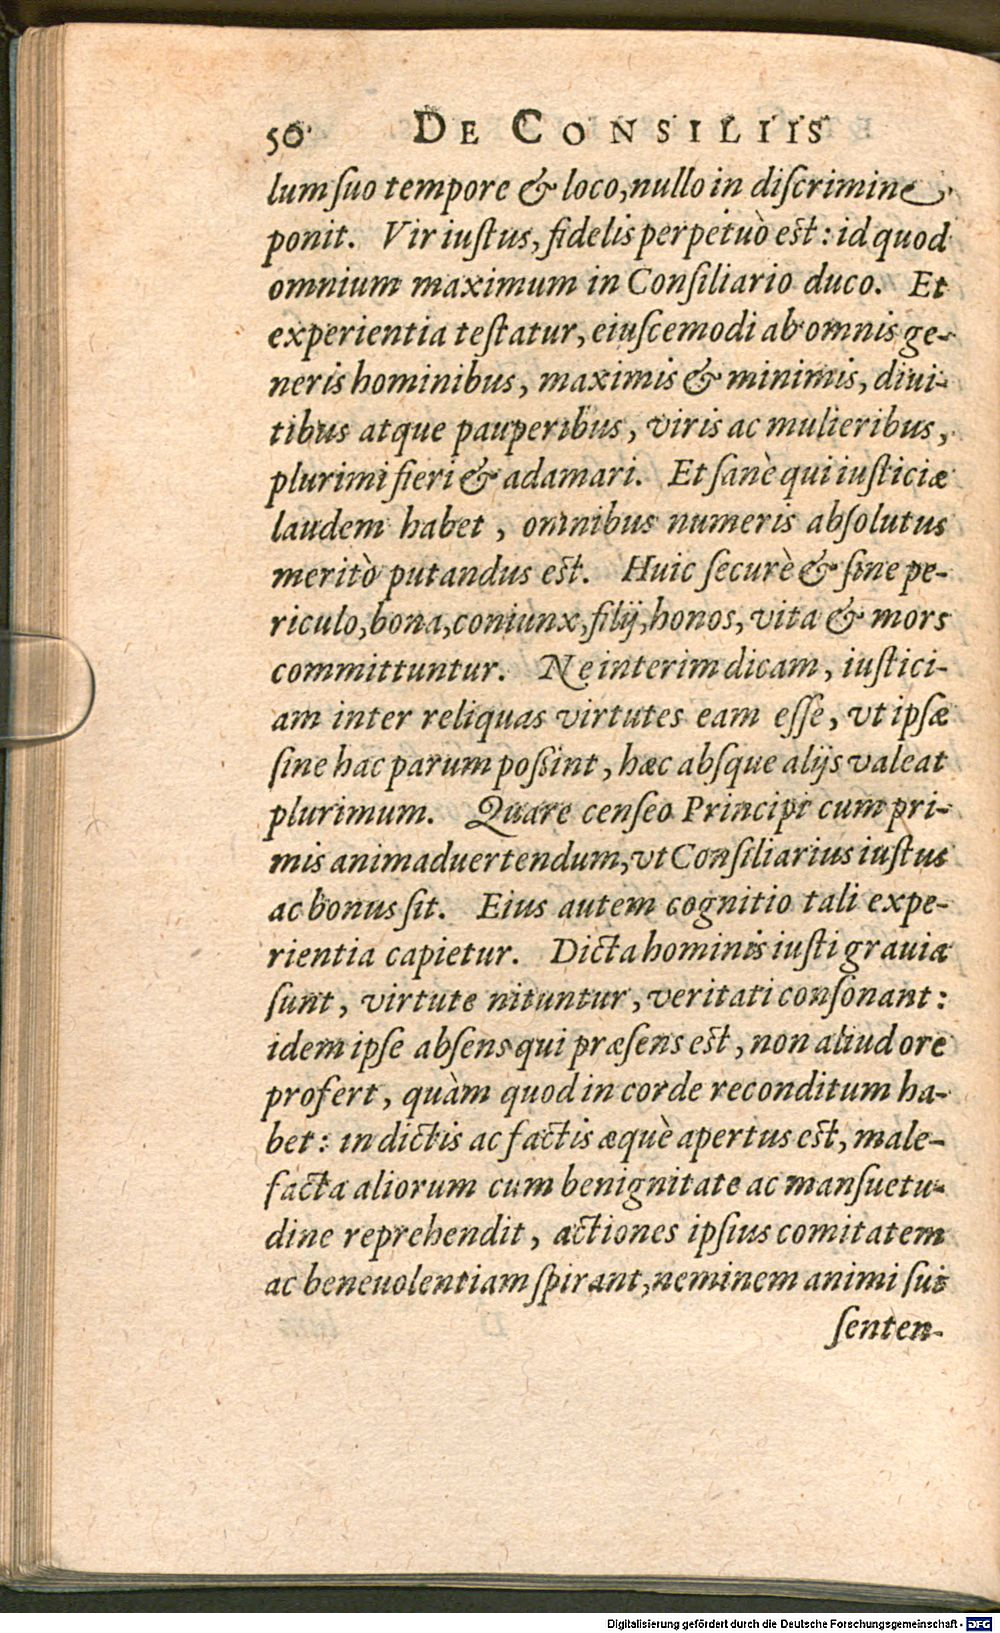 50 DE CONSILIIS
lum ſuo tempore & loco, nullo in diſcrimine
ponit. Vir iuſtus, fidelis perpetuò eſt: id quod
omnium maximum in Conſiliario duco. Et
experientia teſtatur, eiuſcemodi ab omnis ge-
neris hominibus, maximis & minimis, diui-
tibus atque pauperibus, viris ac mulieribus,
plurimi fieri & adamari. Et ſanè qui iuſticiæ
laudem habet, omnibus numeris abſolutus
meritò putandus eſt. Huic ſecurè & ſine pe-
riculo, bona, coniunx, filij, honos, vita & mors
committuntur. Ne interim dicam, iuſtici-
am inter reliquas virtutes eam eſſe, vt ipſæ
ſine hac parum poſsint, hæc abſque alijs valeat
plurimum. Quare cenſeo Principi cum pri-
mis animaduertendum, vt Conſiliarius iuſtus
ac bonus ſit. Eius autem cognitio tali expe-
rientia capietur. Dicta hominis iuſti grauia
ſunt, virtute nituntur, veritati conſonant:
idem ipſe abſens qui præſens eſt, non aliud ore
profert, quàm quod in corde reconditum ha-
bet: in dictis ac factis æquè apertus eſt, male-
facta aliorum cum benignitate ac manſuetu-
dine reprehendit, actiones ipſius comitatem
ac beneuolentiam ſpirant, neminem animi ſui
ſenten-
Digitalisierung gefördert durch die Deutsche Forschungsgemeinschaft - DFG